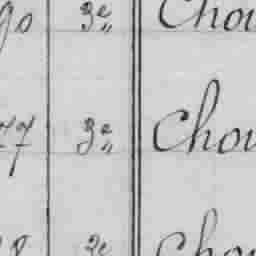 90 3e„ Chou
77 3e„ Chou
98 3e Chou